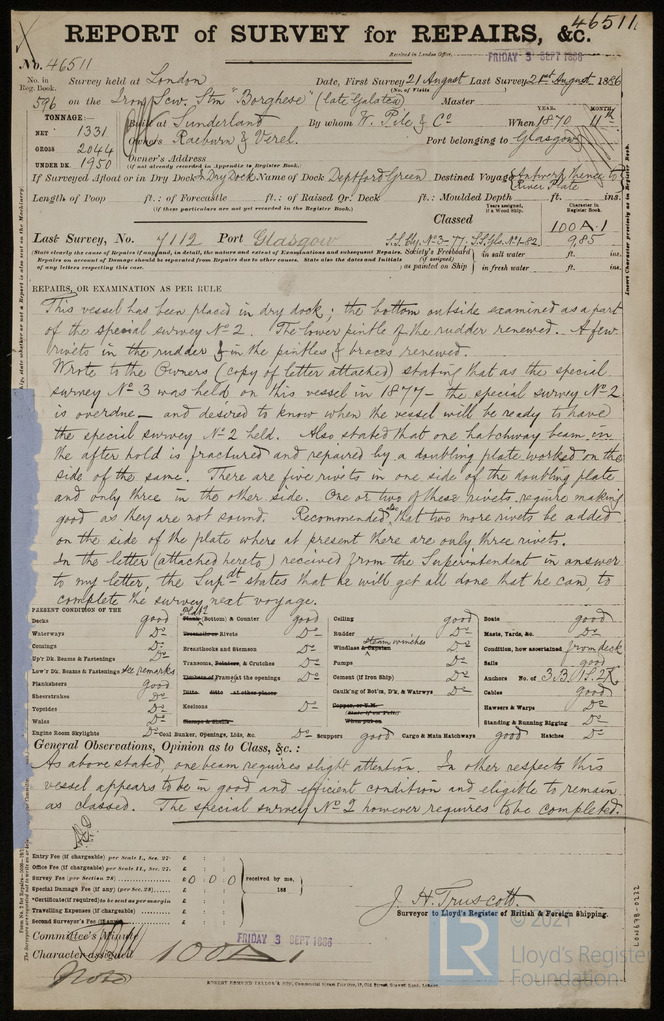 46511.
REPORT of SURVEY for REPAIRS, &c.
Received in London Office,
FRIDAY 3 SEPT 1886
No. 46511
No. in Reg. Book. 596
Survey held at London
Date, First Survey 21 August Last Survey 21st August 1886
(No. of Visits )
on the Iron Scw. Stm "Borghese" (late Galatea) Master
TONNAGE:—
NET 1331
GROSS 2044
UNDER DK. 1950
Built at Sunderland By whom W. Pile & Co When 1870 11th
YEAR. MONTH.
Owners Raeburn & Verel. Port belonging to Glasgow
Owner's Address
(if not already recorded in Appendix to Register Book.)
If Surveyed Afloat or in Dry Dock In Dry Dock Name of Dock Deptford Green Destined Voyage Antwerp thence to River Plate
Length of Poop ft.: of Forecastle ft.: of Raised Qr. Deck ft.: Moulded Depth ft. ins.
(if these particulars are not yet recorded in the Register Book.)
Years assigned, if a Wood Ship.
Character in Register Book.
Classed 100A.1
9,85
Last Survey, No. 7112 Port Glasgow S.S. Gls. No. 1-82
(State clearly the cause of Repairs if any, and, in detail, the nature and extent of Examinations and subsequent Repairs.
Repairs on account of Damage should be separated from Repairs due to other causes. State also the dates and Initials
of any letters respecting this case.
Society's Freeboard (if assigned) as painted on Ship
in salt water ft. ins.
in fresh water ft. ins.
REPAIRS, OR EXAMINATION AS PER RULE
This vessel has been placed in dry dock; the bottom outside examined as a part
of the special survey No 2. The lower pintle of the rudder renewed. A few
rivets in the rudder & in the pintles & braces renewed.
Wrote to the Owners (copy of letter attached) stating that as the special
survey No 3 was held on this vessel in 1877 – the special survey No 2
is overdue – and desired to know when the vessel will be ready to have
the special survey No 2 held. Also stated that one hatchway beam in
the after hold is fractured and repaired by a doubling plate worked on the
side of the same. There are five rivets in one side of the doubling plate
and only three in the other side. One or two of these rivets require making
good as they are not sound. Recommended also that two more rivets be added
on the side of the plate where at present there are only three rivets.
In the letter (attached hereto) received from the Superintendent in answer
to my letter, the Supdt states that he will get all done that he can, to
complete the survey next voyage.
PRESENT CONDITION OF THE
Decks good
Waterways Do
Comings Do
Up'r Dk. Beams & Fastenings Do
Low'r Dk. Beams & Fastenings See remarks
Planksheers good
Sheerstrakes Do
Topsides Do
Wales Do
Engine Room Skylights Do
Plating
Plank (Bottom) & Counter good
Treenails or Rivets Do
Breasthooks and Stemson Do
Transoms, Pointers, & Crutches Do
Timbers of Frame at the openings Do
Ditto ditto at other places
Keelsons Do
Clamps & Shelfs
Coal Bunker, Openings, Lids, &c. Do
Ceiling good
Rudder Do
Steam winches
Windlass & Capstan Do
Pumps Do
Cement (if Iron Ship) Do
Caulk'ng of Bot'm, D'k, & Watrwys Do
Scuppers good
Cargo & Main Hatchways good
Boats good
Masts, Yards, &c. Do
Condition, how ascertained from deck
Sails good
Anchors No. of 3.B. 1.S. 2.K.
Cables good
Hawsers & Warps Do
Standing & Running Rigging Do
Hatches Do
General Observations, Opinion as to Class, &c.:
As above stated, one beam requires slight attention. In other respects this
vessel appears to be in good and efficient condition and eligible to remain
as classed. The special survey No 2 however requires to be completed.
Entry Fee (if chargeable) per Scale I., Sec. 27. £ : :
Office Fee (if chargeable) per Scale II., Sec. 27. £ : :
Survey Fee (per Section 28) £ 0 : 0 : 0
Special Damage Fee (if any) (per Sec. 28) £ : :
*Certificate (if required) to be sent as per margin £ : :
Travelling Expenses (if chargeable) £ : :
Second Surveyor's Fee (if any) £ : :
received by me,
188
J. H. Truscott.
Surveyor to Lloyd's Register of British & Foreign Shipping.
Committee's Minute FRIDAY 3 SEPT 1886
Character assigned 100A1
Noted
LON698-0232
© 2021
LR
Lloyd's Register
Foundation